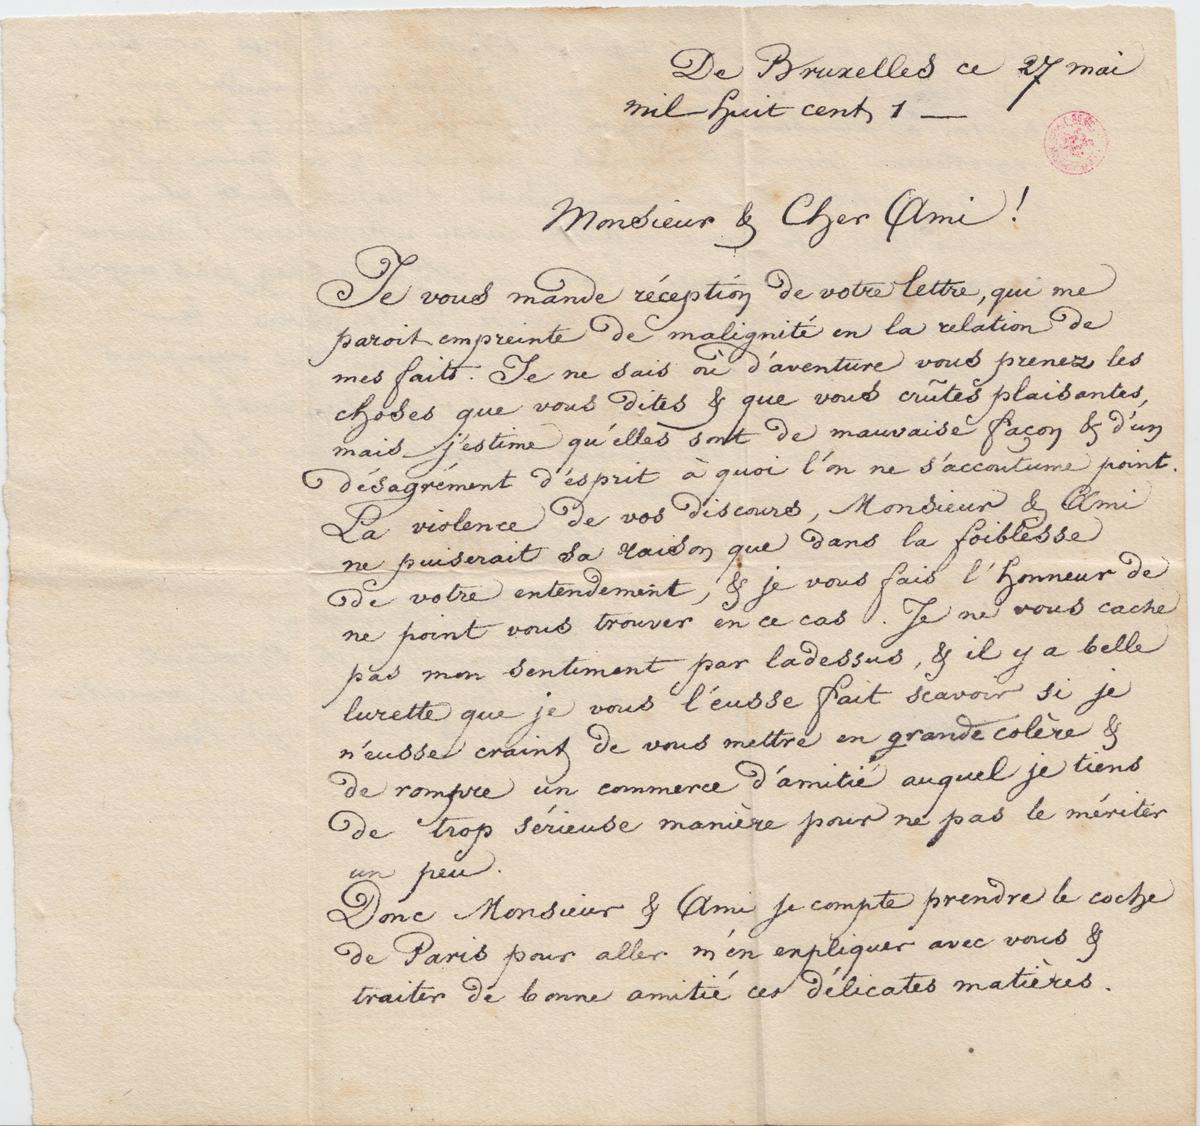 De Bruxelles ce 27 mai
mil huit cent 1 —
Monsieur & Cher Ami !
Je vous mande réception de votre lettre, qui me
paroit empreinte de malignité en la relation de
mes faits. Je ne sais où d'aventure vous prenez les
choses que vous dites & que vous crûtes plaisantes,
mais j'estime qu'elles sont de mauvaise façon & d'un
désagrément d'esprit à quoi l'on ne s'accoutume point.
La violence de vos discours, Monsieur & Ami
ne puiserait sa raison que dans la foiblesse
de votre entendement, & je vous fais l'honneur de
ne point vous trouver en ce cas. Je ne vous cache
pas mon sentiment par ladessus, & il y a belle
lurette que je vous l'eusse fait scavoir si je
n'eusse craint de vous mettre en grande colère &
de rompre un commerce d'amitié auquel je tiens
de trop sérieuse manière pour ne pas le mériter
un peu.
Donc Monsieur & Ami je compte prendre le coche
de Paris pour aller m'en expliquer avec vous &
traiter de bonne amitié ces délicates matières.